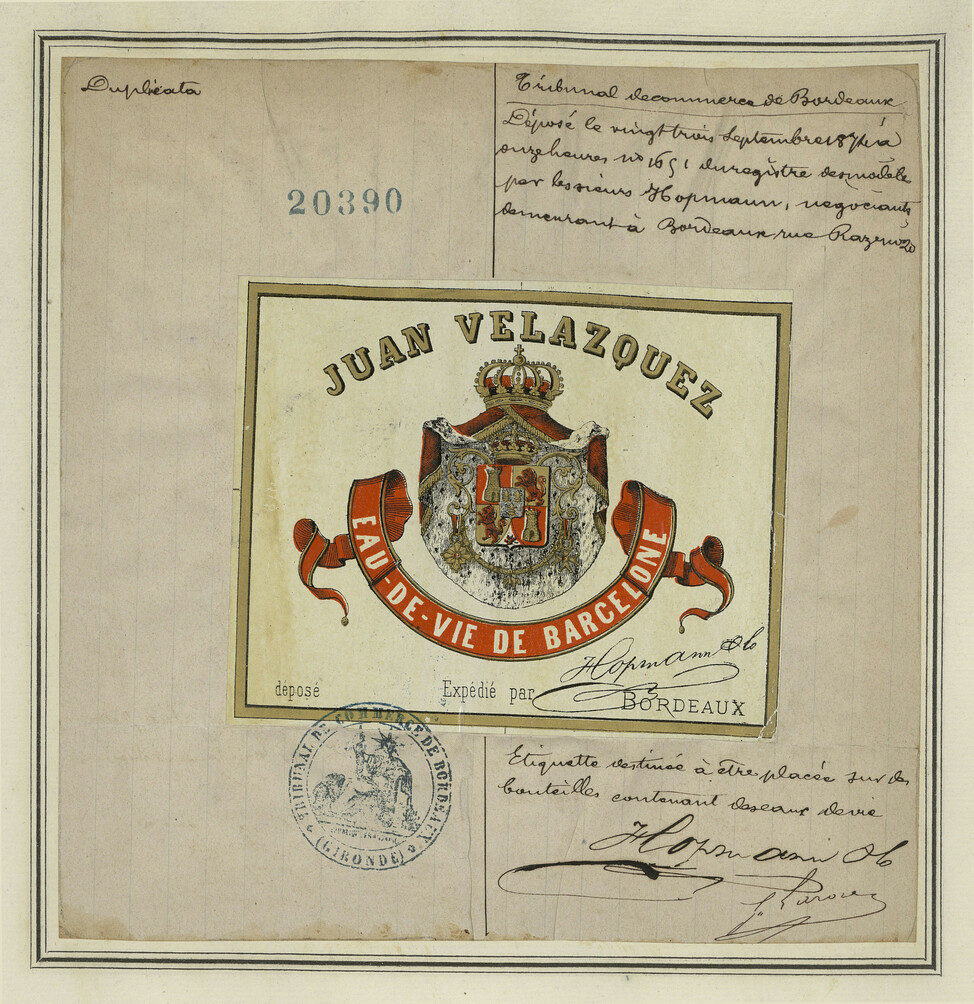 Duplicata
20390
Tribunal de commerce de Bordeaux
Déposé le vingt trois Septembre 1874 à
onze heures no 1651 du registre des modèle
par les sieurs Hopmann, negociants,
demeurant à Bordeaux rue Raze no 20
JUAN VELAZQUEZ
EAU-DE-VIE DE BARCELONE
Hopmann & Co
déposé Expédié par BORDEAUX
TRIBUNAL DE COMMERCE DE BORDEAUX
(GIRONDE)
Etiquette destinée à être placée sur des
bouteilles contenant des eaux de vie
Hopmann & Co